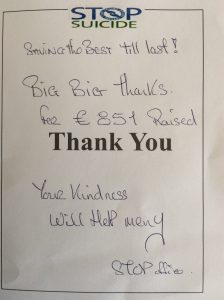 STOP
SUICIDE
Saving the Best till last!
Big Big thanks.
for € 851 Raised
Thank You
Your Kindness
Will Help many
STOP office